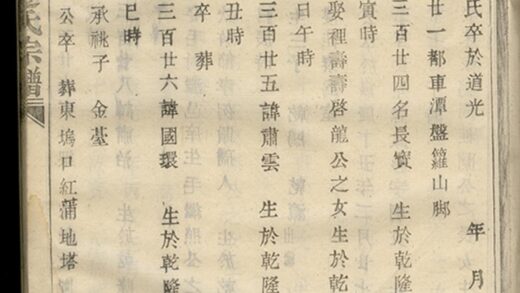 年 月
氏卒於道光
廿一都車潭盤籮山脚
三百廿四名長寶 生於乾隆
寅時
娶裡壽壽啓龍公之女生於乾
日午時
三百廿五諱肅雲 生於乾隆
丑時
卒 葬
三百廿六諱國環 生於乾隆
巳時
承祧子 金臺
公卒 葬東塢口紅蒲地塔
氏宗譜